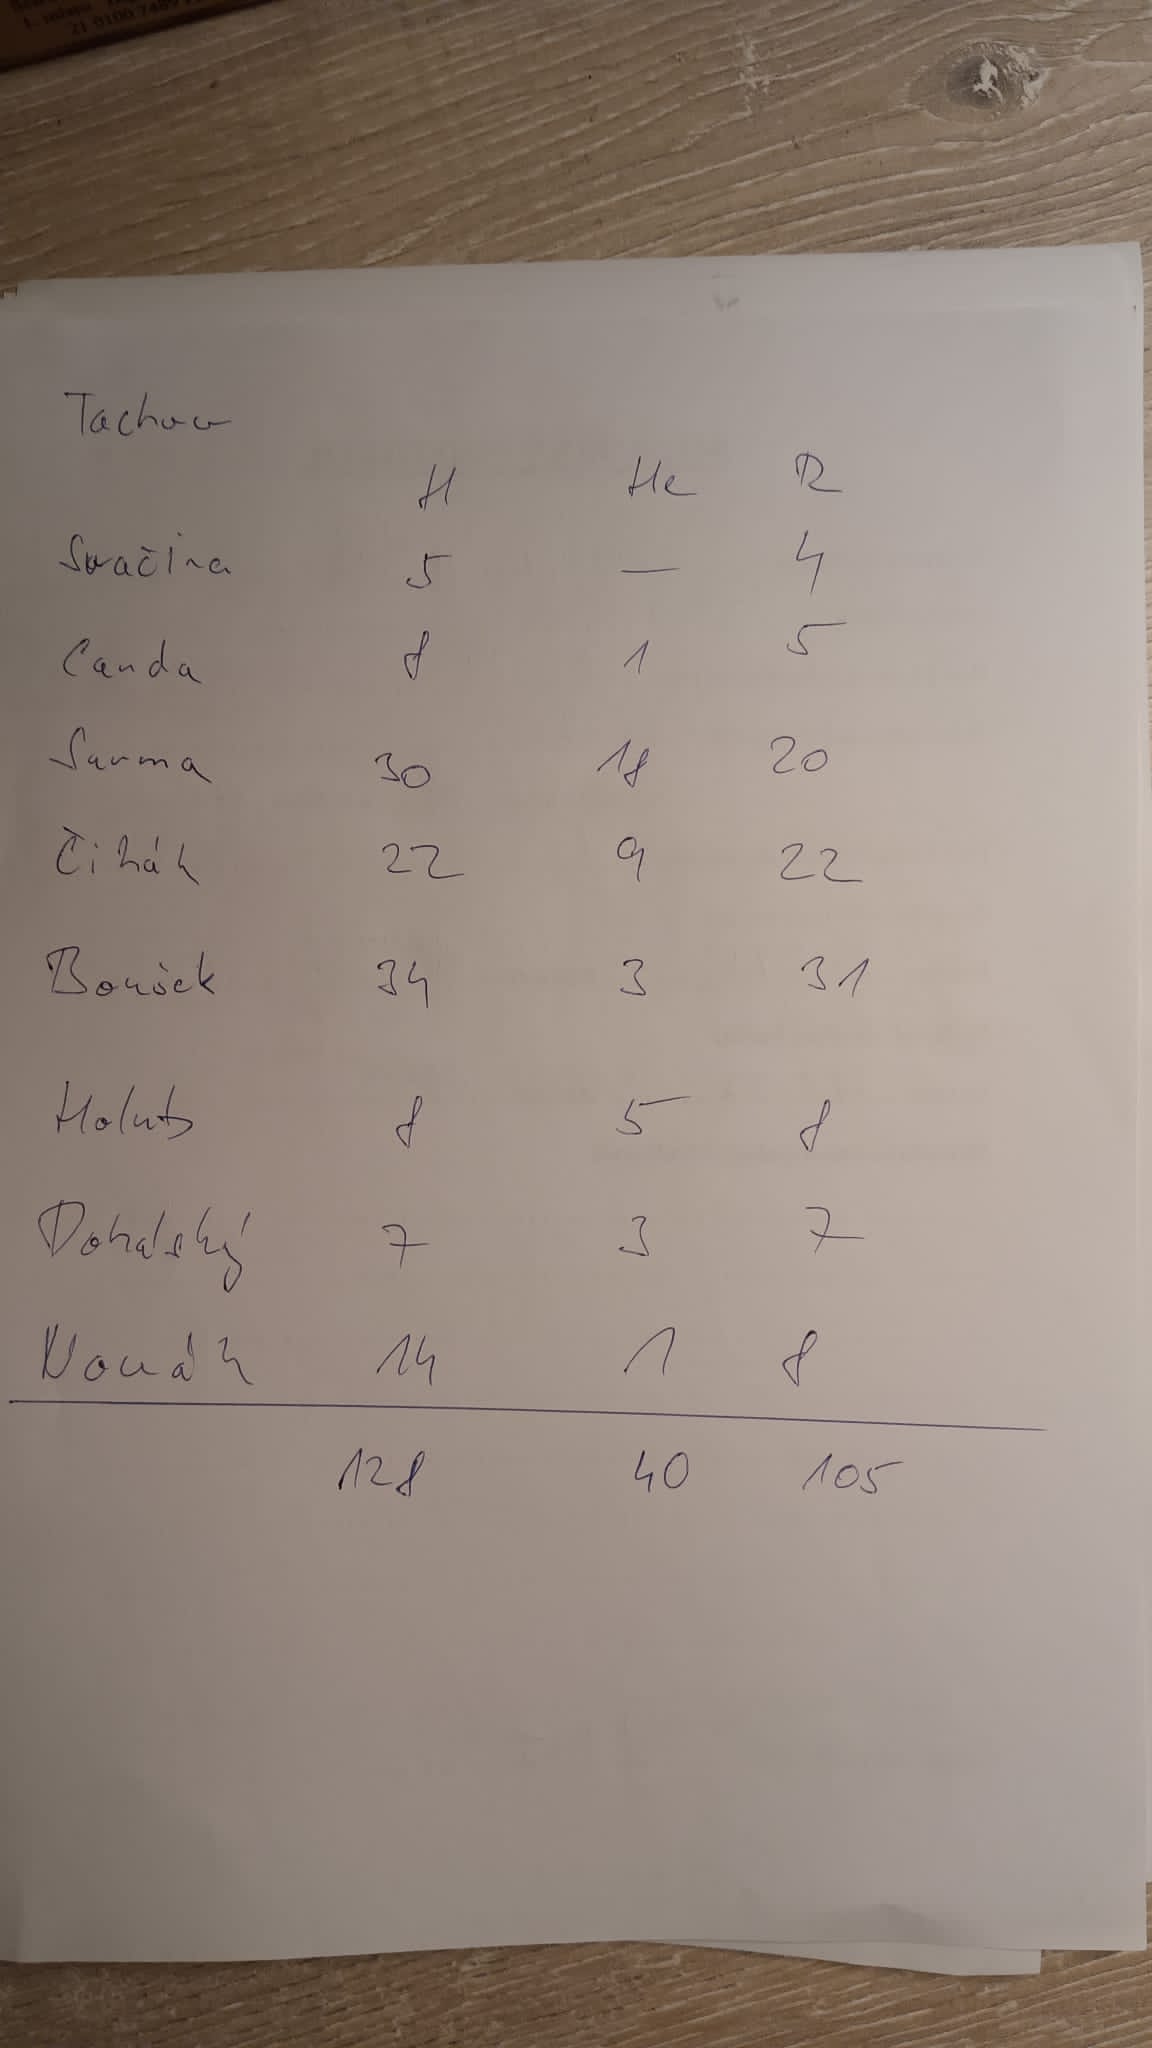 21 0100 7489
Tachov
H He R
Svačina 5 — 4
Canda 8 1 5
Surma 30 18 20
Čihák 22 9 22
34 3 31
Holub 8 5 8
Dohalský 7 3 7
Novák 14 1 8
128 40 105